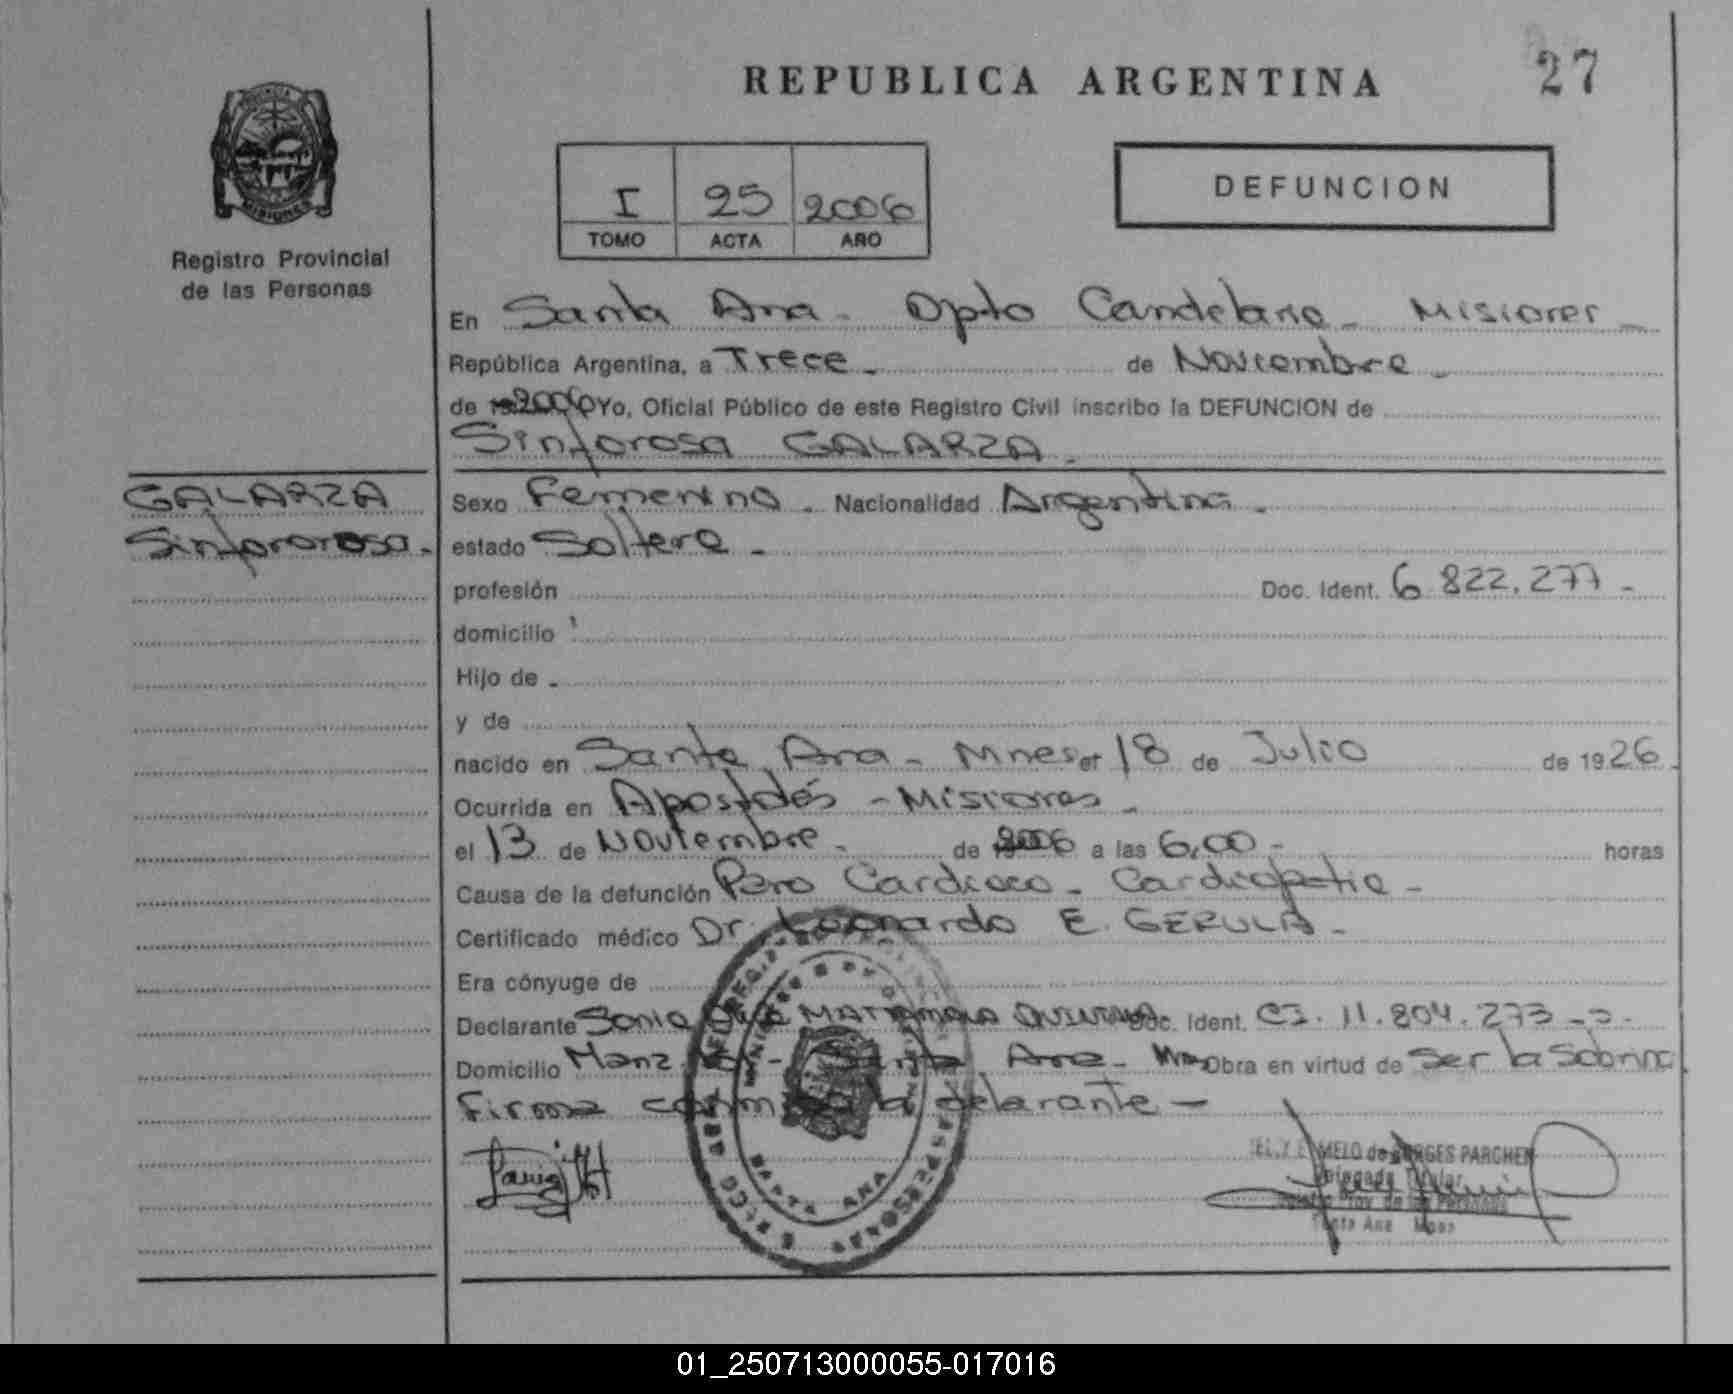 27
REPUBLICA ARGENTINA
I 25 2006
TOMO ACTA AÑO
DEFUNCION
PROVINCIA
MISIONES
Registro Provincial
de las Personas
En Santa Ana - Dpto Candelaria - Misiones -
República Argentina, a Trece - de Noviembre -
de 2006 Yo, Oficial Público de este Registro Civil inscribo la DEFUNCION de
Sinforosa GALARZA -
GALARZA
Sinfororosa -
Sexo Femenino - Nacionalidad Argentina -
estado Soltera -
profesión Doc. Ident. 6.822.277 -
domicilio
Hijo de -
y de
nacido en Santa Ana - Mnes el 18 de Julio de 1926
Ocurrida en Apostoles - Misiones -
el 13 de Noviembre - de 2006 a las 6,00 - horas
Causa de la defunción Paro Cardiaco - Cardiopatia -
Certificado médico Dr. Leonardo E. GERULA -
Era cónyuge de
Declarante Sonia Doc. Ident. CI. 11.804.273 -
Domicilio Manz - Santa Ana - Obra en virtud de Ser la Sobrina
Firma la delarante -
MELO de BORGES PARCHEN
Delegada Titular
Registro Prov. de las Personas
Santa Ana
SANTA ANA
01_250713000055-017016